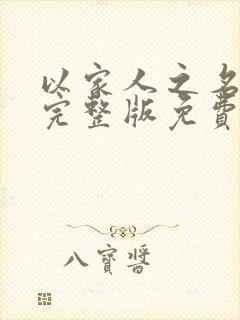 以家人之名
完整版免費
八寶醬